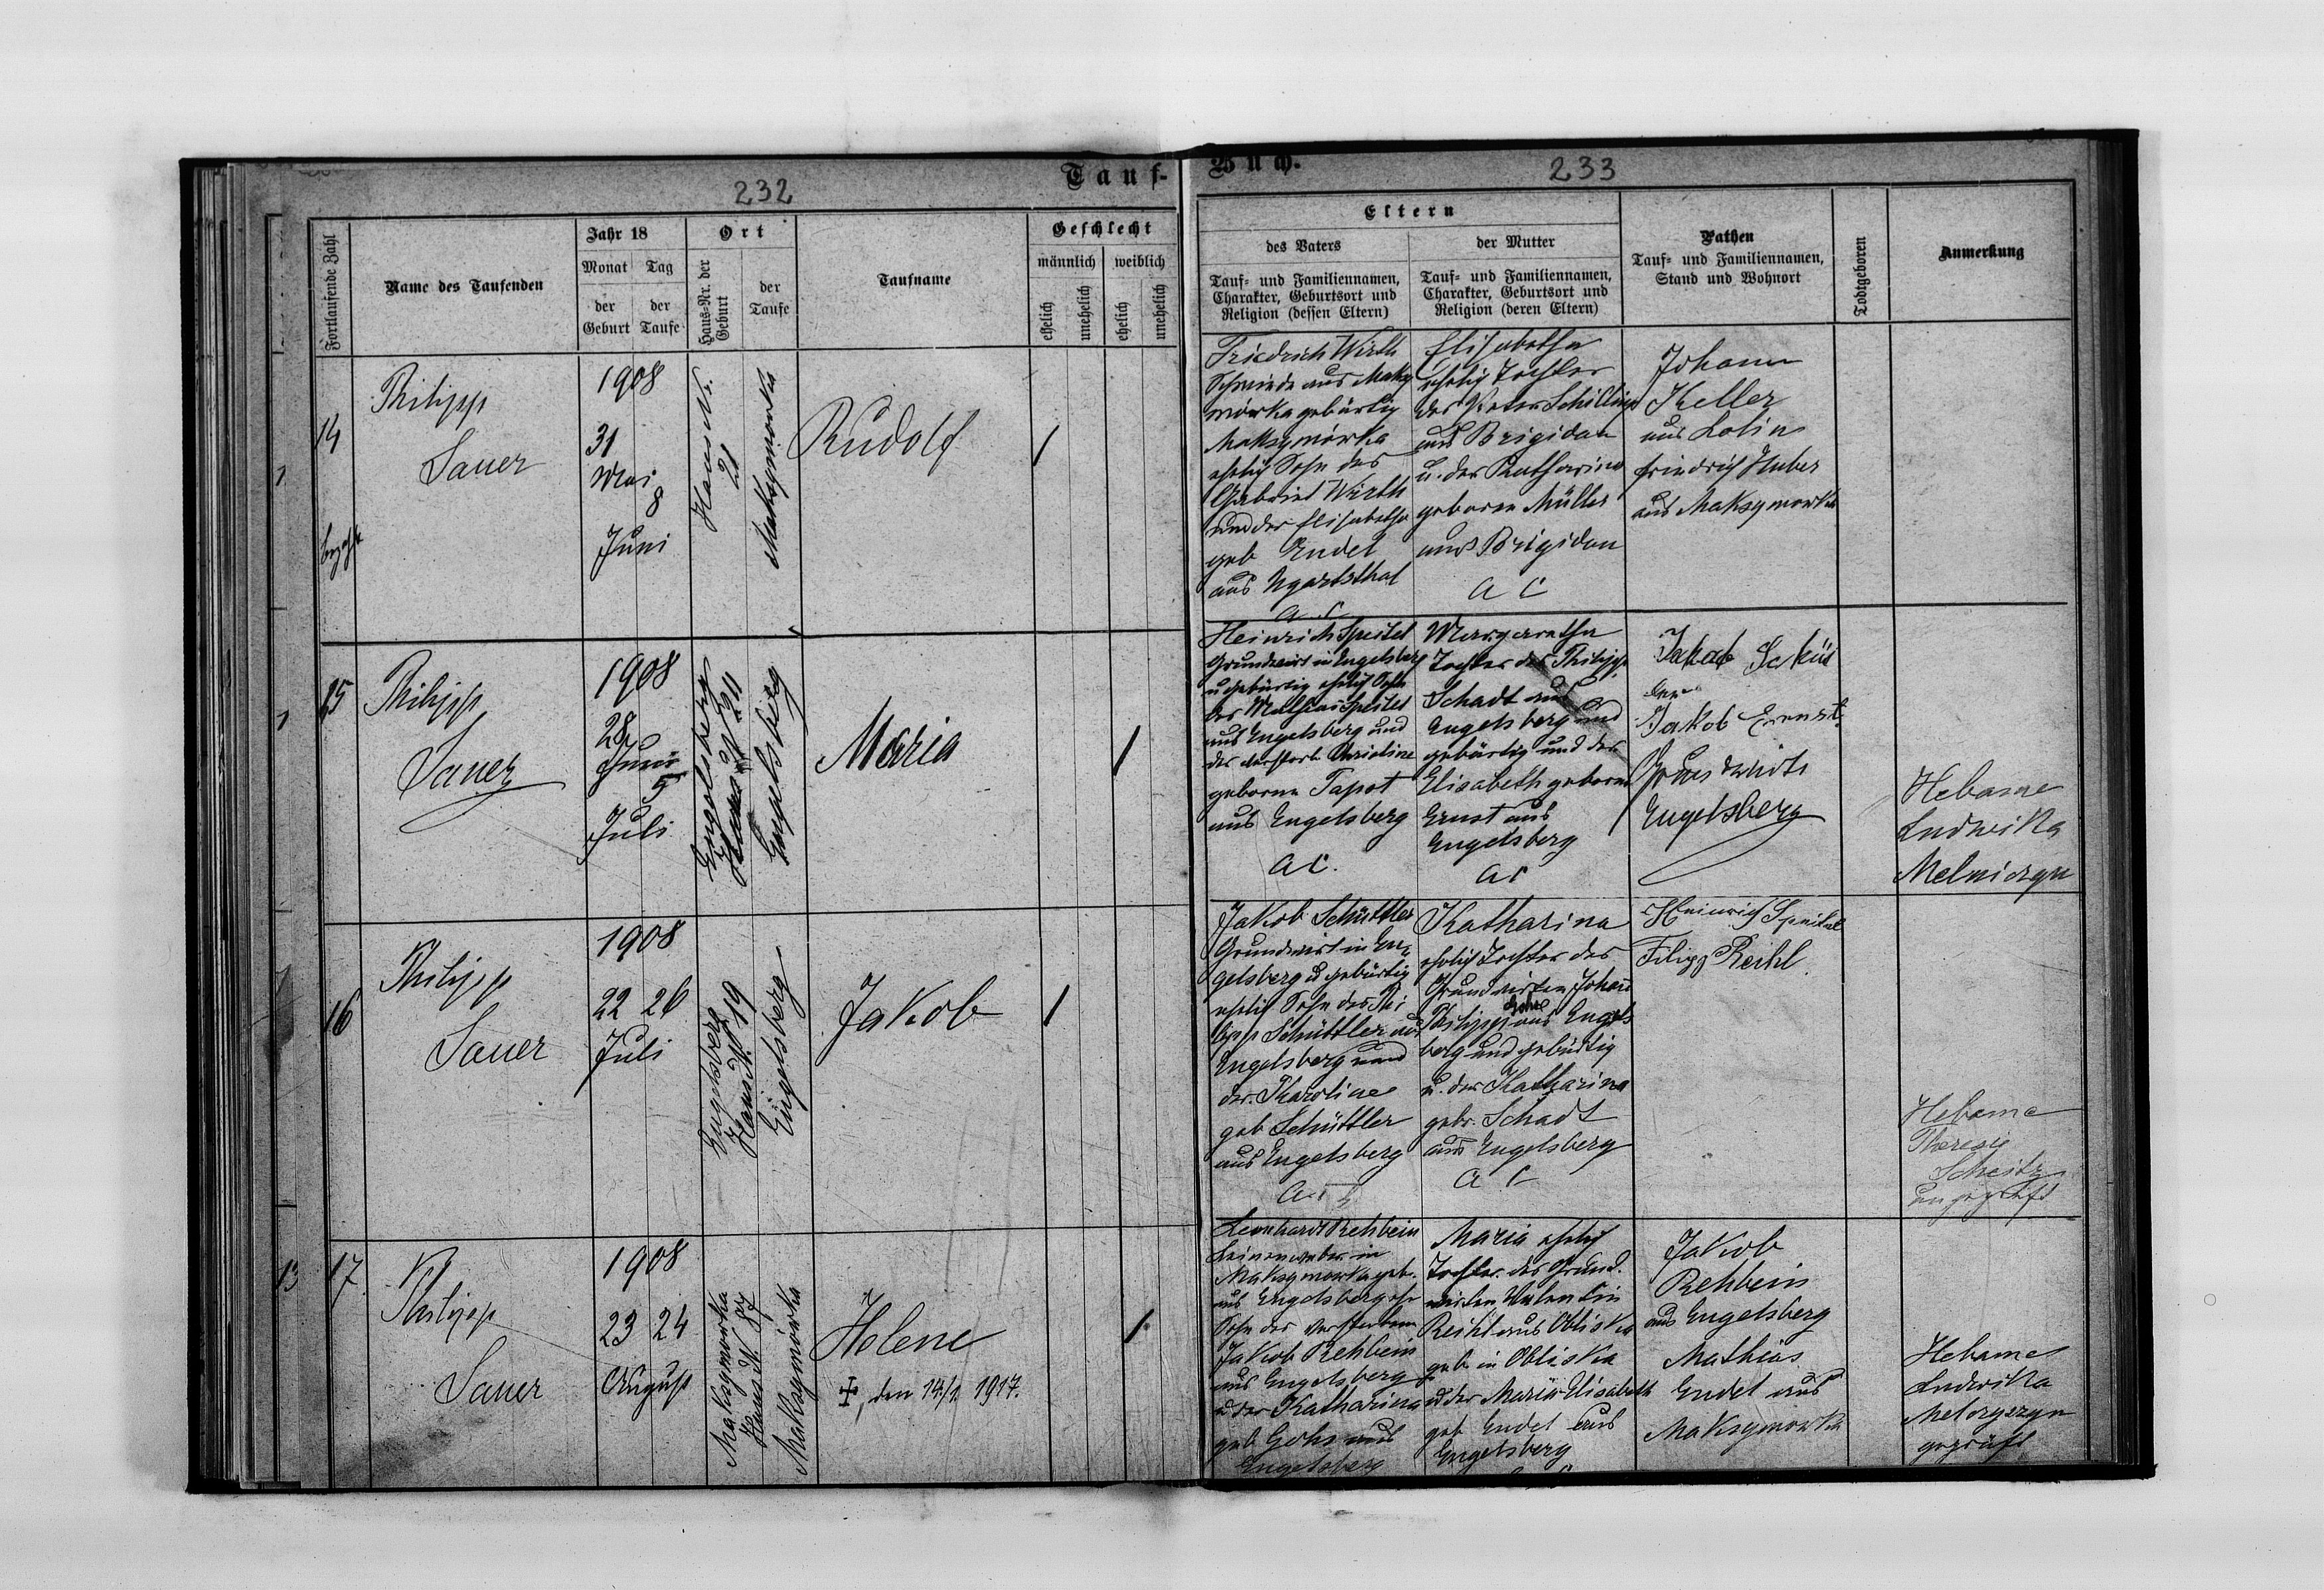 Tauf-
232
Fortlaufende Zahl
Name des Taufenden
Jahr 18
Monat
Tag
der Geburt
der Taufe
Ort
Haus-Nr. der Geburt
der Taufe
Taufname
Geschlecht
männlich
weiblich
ehelich
unehelich
ehelich
unehelich
14
Philipp
Sauer
1908
31
Mai
8
Juni
Haus Nr.
21
Maksymowka
Rudolf
/
15
Philipp
Sauer
1908
28
Juni
5
Juli
Engelsberg
Engelsberg
Maria
/
16
Philipp
Sauer
1908
22 26
Juli
Engelsberg
Haus N. 19
Engelsberg
Jakob
/
17
Philipp
Sauer
1908
23 24
August
Maksymowka
Haus N. 87
Maksymówka
Helene
den 14/1 1917.
/
13
Buch.
233
Eltern
des Vaters
Tauf- und Familiennamen,
Charakter, Geburtsort und
Religion (dessen Eltern)
der Mutter
Tauf- und Familiennamen,
Charakter, Geburtsort und
Religion (deren Eltern)
Pathen
Tauf- und Familiennamen,
Stand und Wohnort
Todtgeboren
Anmerkung
Friedrich Wirth
Schmiede aus Maksy
mówka gebürtig
Maksymówka
ehelig Sohn des
Gabriel Wirth
und der Elisabetha
geb Endel
aus Ugartsthal
A. C
Elisabetha
ehelig Tochter
des Schilling
aus Brigidau
u. der Katharina
geborene Müller
aus Brigidau
A C
Johann
Keller
aus
Friedrich Huber
aus Maksymowka
Heinrich Speitel
Grundwirt in Engelsberg
u gebürtig ehelig Sohn
des Mathias Speitel
aus Engelsberg und
der Christine
geborene
aus Engelsberg
A C.
Margaretha
Tochter des Philipp
Schadt aus
Engelsberg und
gebürtig und der
Elisabeth geborene
Ernst aus
Engelsberg
A C
Jakob
Jakob Ernst
Engelsberg
Hebame
Ludwika
Jakob Schüttler
Grundwirt in En
gelsberg u gebürtig
ehelig Sohn des Phi
lipp Schüttler aus
Engelsberg und
der Karoline
geb Schüttler
aus Engelsberg
A. C
Katharina
ehelig Tochter des
Grundwirten Johan
Philipp aus Engels
berg und gebürtig
u. der Katharina
geb. Schadt
aus Engelsberg
A C
Heinrich Speitel
Filipp Reihl
Hebame
Theresie
ungeprüft
Leonhardt Rehbein
Leinenweber in
Maksymowka geb.
aus Engelsberg
Sohn des verstorbenen
Jakob Rehbein
aus Engelsberg
u der Katharina
geb aus
Engelsberg
Maria ehelig
Tochter des Grund.
wirten Valentin
Reihl aus Obliska
geb in Obliska
u der Maria Elisabeth
geb Endel aus
Engelsberg
Jakob
Rehbein
aus Engelsberg
Mathias
Endel aus
Maksymowka
Hebame
Ludwika
geprüft